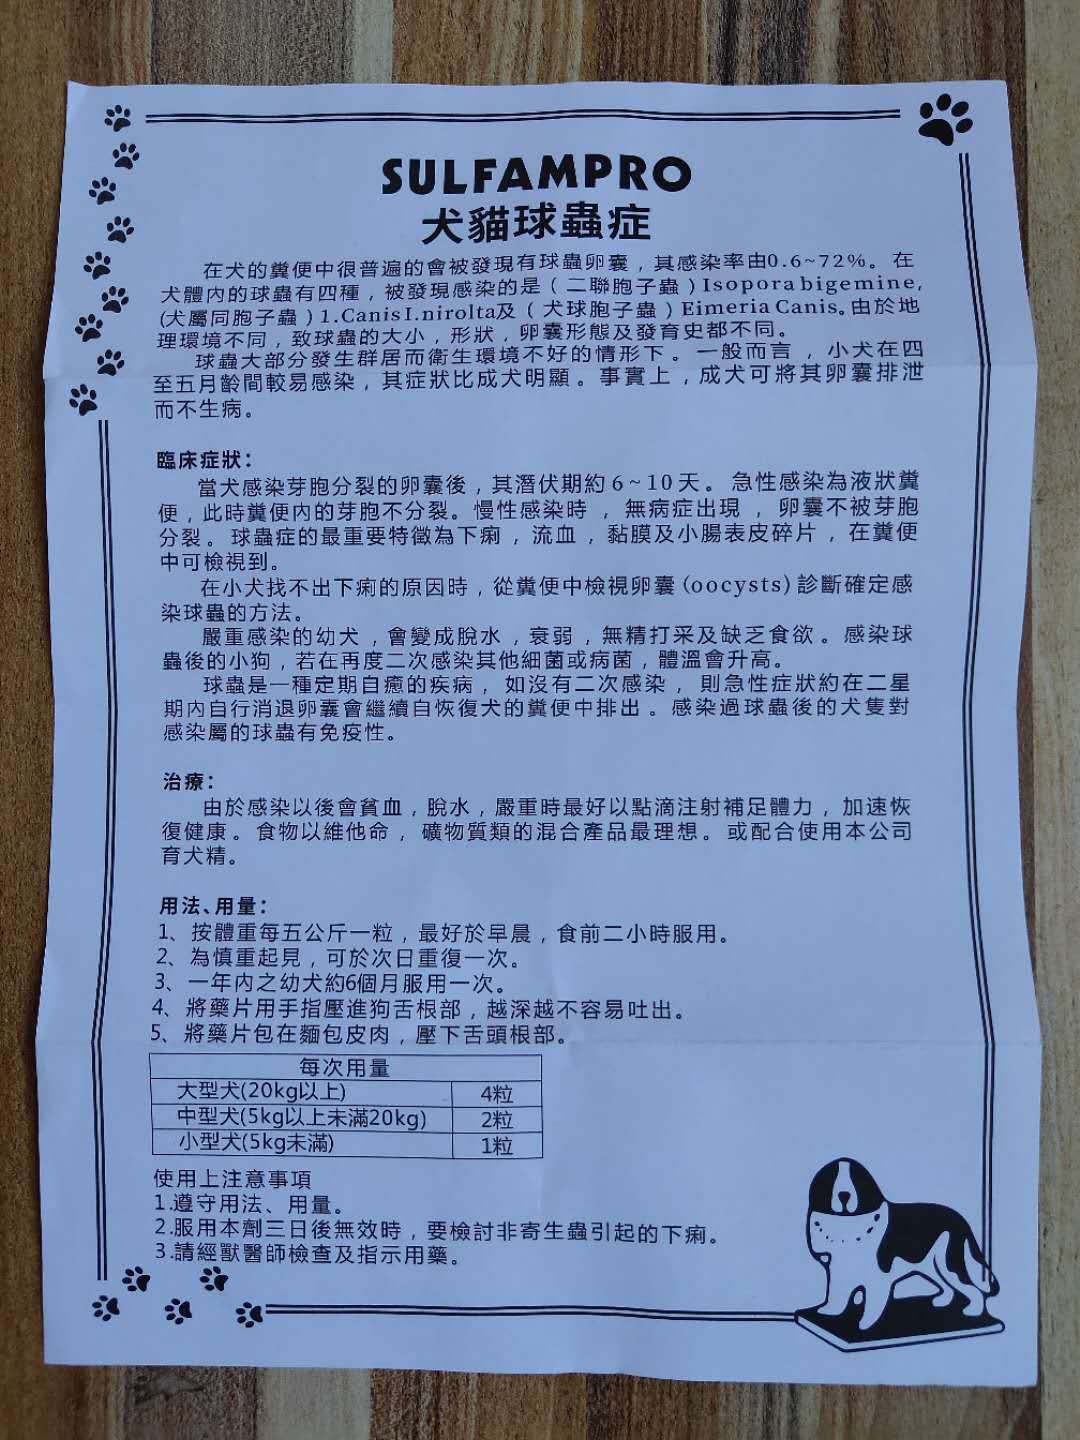 SULFAMPRO
犬貓球蟲症
在犬的糞便中很普遍的會被發現有球蟲卵囊，其感染率由0.6~72%。在
犬體內的球蟲有四種，被發現感染的是（二聯胞子蟲）Isopora bigemine,
(犬屬同胞子蟲）1.Canis I.nirolta及（犬球胞子蟲）Eimeria Canis。由於地
理環境不同，致球蟲的大小，形狀，卵囊形態及發育史都不同。
球蟲大部分發生群居而衛生環境不好的情形下。一般而言，小犬在四
至五月齡間較易感染，其症狀比成犬明顯。事實上，成犬可將其卵囊排泄
而不生病。
臨床症狀：
當犬感染芽胞分裂的卵囊後，其潛伏期約6~10天。急性感染為液狀糞
便，此時糞便內的芽胞不分裂。慢性感染時，無病症出現，卵囊不被芽胞
分裂。球蟲症的最重要特徵為下痢，流血，黏膜及小腸表皮碎片，在糞便
中可檢視到。
在小犬找不出下痢的原因時，從糞便中檢視卵囊（oocysts）診斷確定感
染球蟲的方法。
嚴重感染的幼犬，會變成脫水，衰弱，無精打采及缺乏食欲。感染球
蟲後的小狗，若在再度二次感染其他細菌或病菌，體溫會升高。
球蟲是一種定期自癒的疾病，如沒有二次感染，則急性症狀約在二星
期內自行消退卵囊會繼續自恢復犬的糞便中排出。感染過球蟲後的犬隻對
感染屬的球蟲有免疫性。
治療：
由於感染以後會貧血，脫水，嚴重時最好以點滴注射補足體力，加速恢
復健康。食物以維他命，礦物質類的混合產品最理想。或配合使用本公司
育犬精。
用法、用量：
1、按體重每五公斤一粒，最好於早晨，食前二小時服用。
2、為慎重起見，可於次日重復一次。
3、一年內之幼犬約6個月服用一次。
4、將藥片用手指壓進狗舌根部，越深越不容易吐出。
5、將藥片包在麵包皮肉，壓下舌頭根部。
每次用量
大型犬(20kg以上) 4粒
中型犬(5kg以上未滿20kg) 2粒
小型犬(5kg未滿) 1粒
使用上注意事項
1.遵守用法、用量。
2.服用本劑三日後無效時，要檢討非寄生蟲引起的下痢。
3.請經獸醫師檢查及指示用藥。